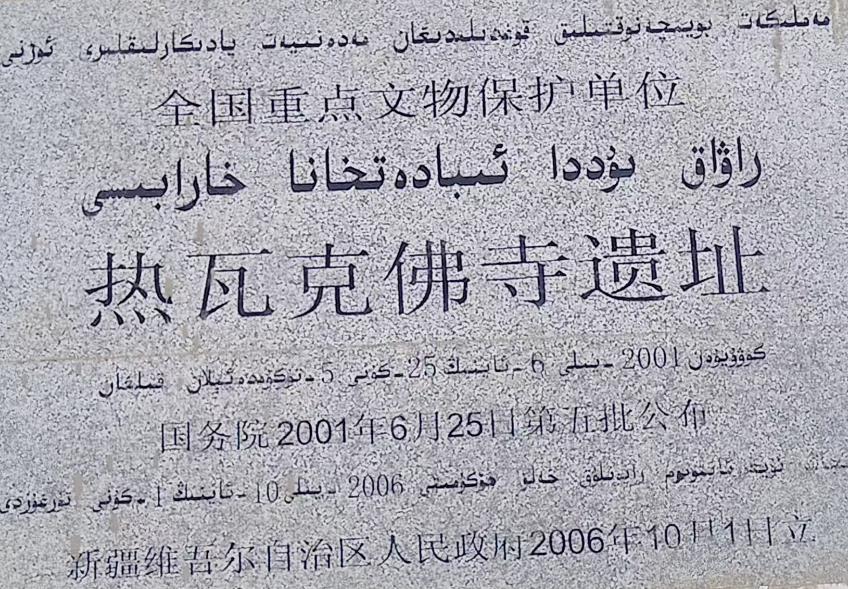 مەملىكەت بويىچە نۇقتىلىق قوغدىلىدىغان مەدەنىيەت يادىكارلىقلىرى ئورنى
全国重点文物保护单位
راۋاق بۇددا ئىبادەتخانا خارابىسى
热瓦克佛寺遗址
گوۋۇيۈەن 2001 -يىلى 6 -ئاينىڭ 25-كۈنى 5 -تۈركۈمدە ئېلان قىلغان
国务院2001年6月25日第五批公布
ئاپتونوم رايونلۇق خەلق ھۆكۈمىتى 2006 -يىلى 10 -ئاينىڭ 1 -كۈنى تۇرغۇزدى
新疆维吾尔自治区人民政府2006年10月1日立